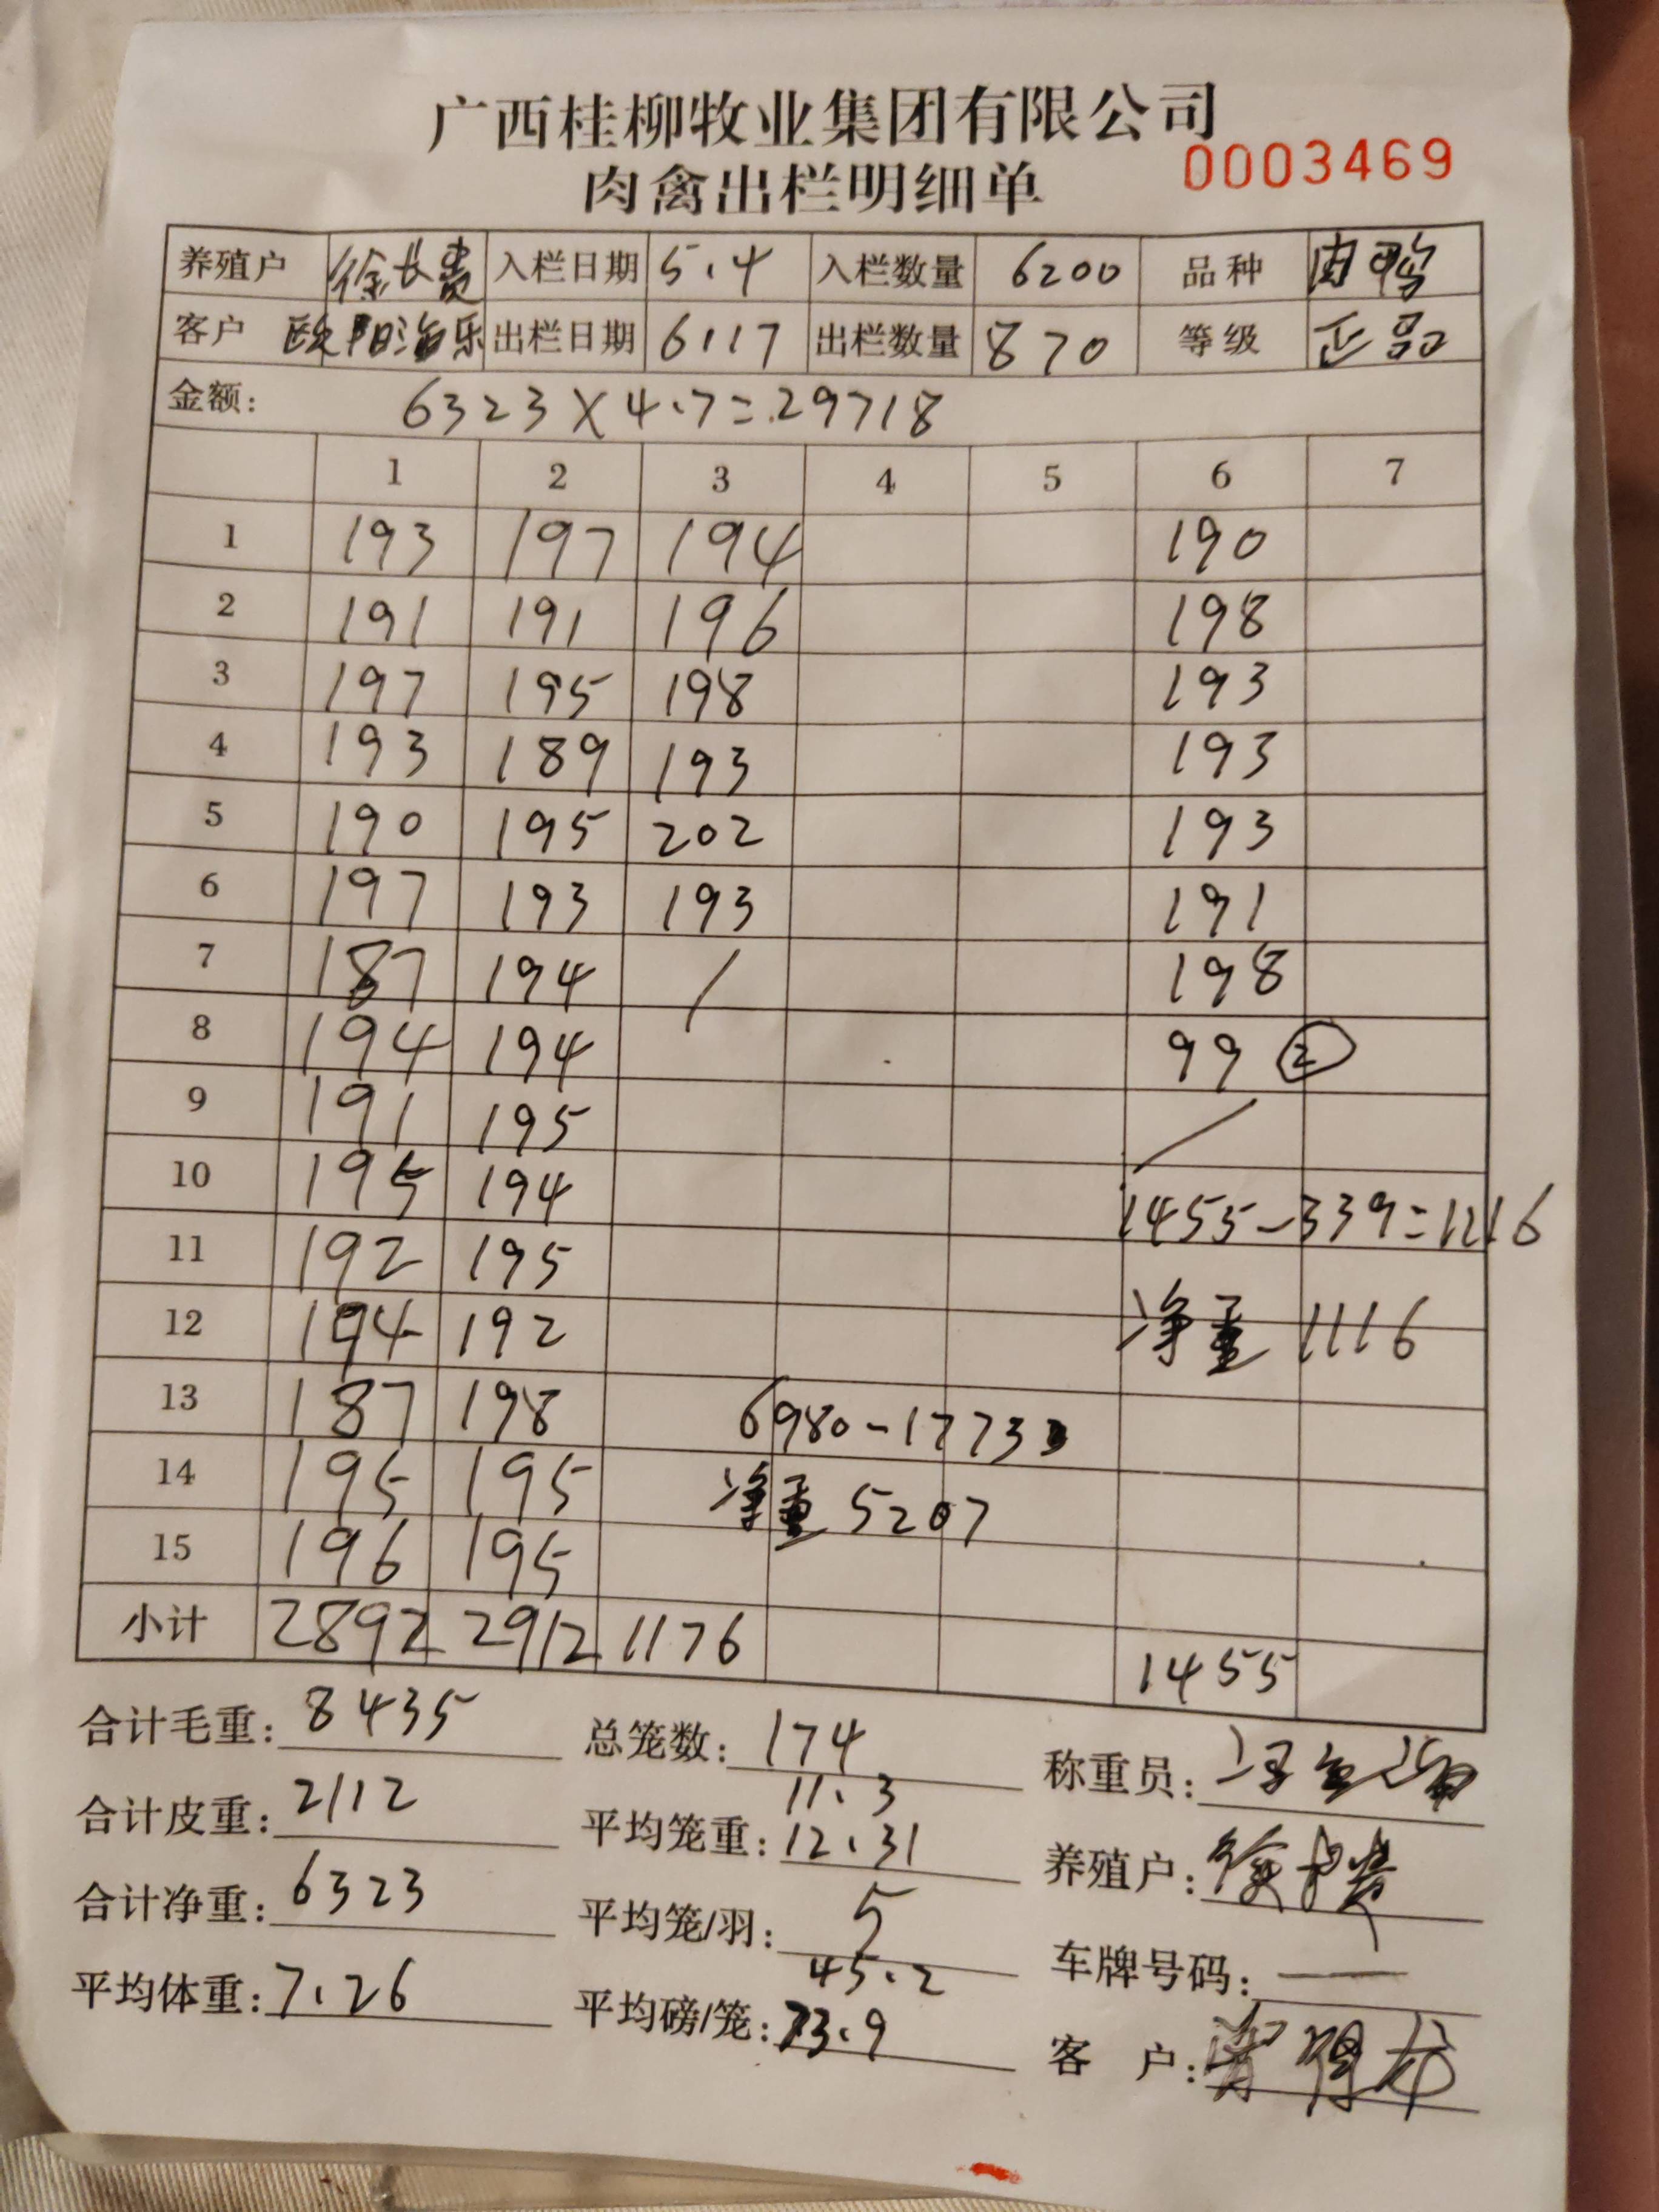 广西桂柳牧业集团有限公司
肉禽出栏明细单 0003469
养殖户 徐长贵 入栏日期 5.4 入栏数量 6200 品种 肉鸭
客户 欧阳治乐 出栏日期 6.17 出栏数量 870 等级 正品
金额: 6323×4.7=29718
1 2 3 4 5 6 7
1 193 197 194 190
2 191 191 196 198
3 197 195 198 193
4 193 189 193 193
5 190 195 202 193
6 197 193 193 191
7 187 194 / 198
8 194 194 99 ②
9 191 195 /
10 195 194
1455-339=1216
11 192 195
12 194 192 净重 1116
13 187 198 6980-1773
14 195 195 净重 5207
15 196 195
小计 2892 2912 1176 1455
合计毛重: 8435 总笼数: 174 称重员:
11.3
合计皮重: 2112 平均笼重: 12.31 养殖户:
合计净重: 6323 平均笼/羽: 5 车牌号码: —
45.2
平均体重: 7.26 平均磅/笼: 73.9 客户: